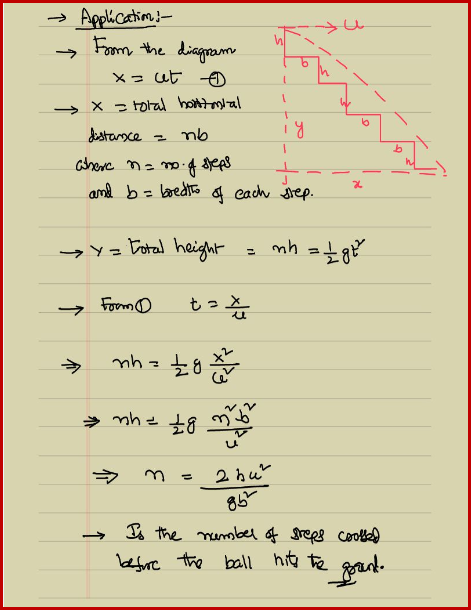 → Application:-
→ From the diagram
x = ut —①
→ x = total horizontal
distance = nb
where n = no. of steps
and b = bredth of each step.
u
h
b
h
h
b
y
b
h
x
→ y = Total height = nh = 1/2 gt²
→ From ① t = x/u
⇒ nh = 1/2 g x²/u²
⇒ nh = 1/2 g n²b²/u²
⇒ n = 2hu²/gb²
→ Is the number of steps
before the ball hits the